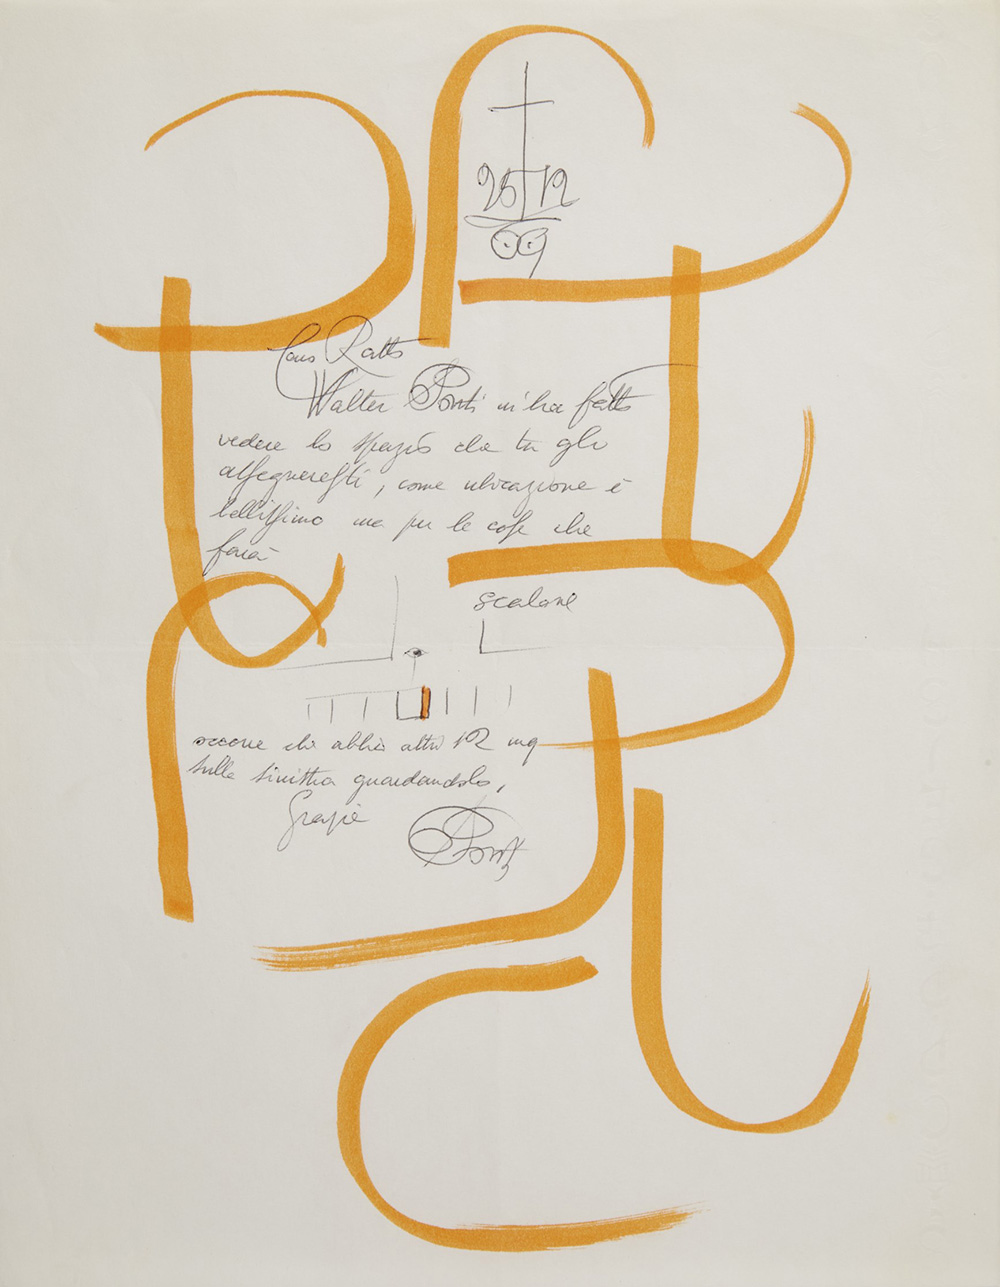 25 12
69
Caro Ratto
Walter Ponti m'ha fatto
vedere lo spazio che tu gli
assegneresti, come ubicazione è
bellissimo ma per le cose che
farà
scalone
occorre che abbia altri 12 mq
sulla sinistra guardandolo,
Grazie
Ponti